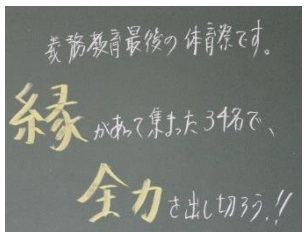 義務教育最後の体育祭です。
縁があって集まった34名で、
全力を出し切ろう!!